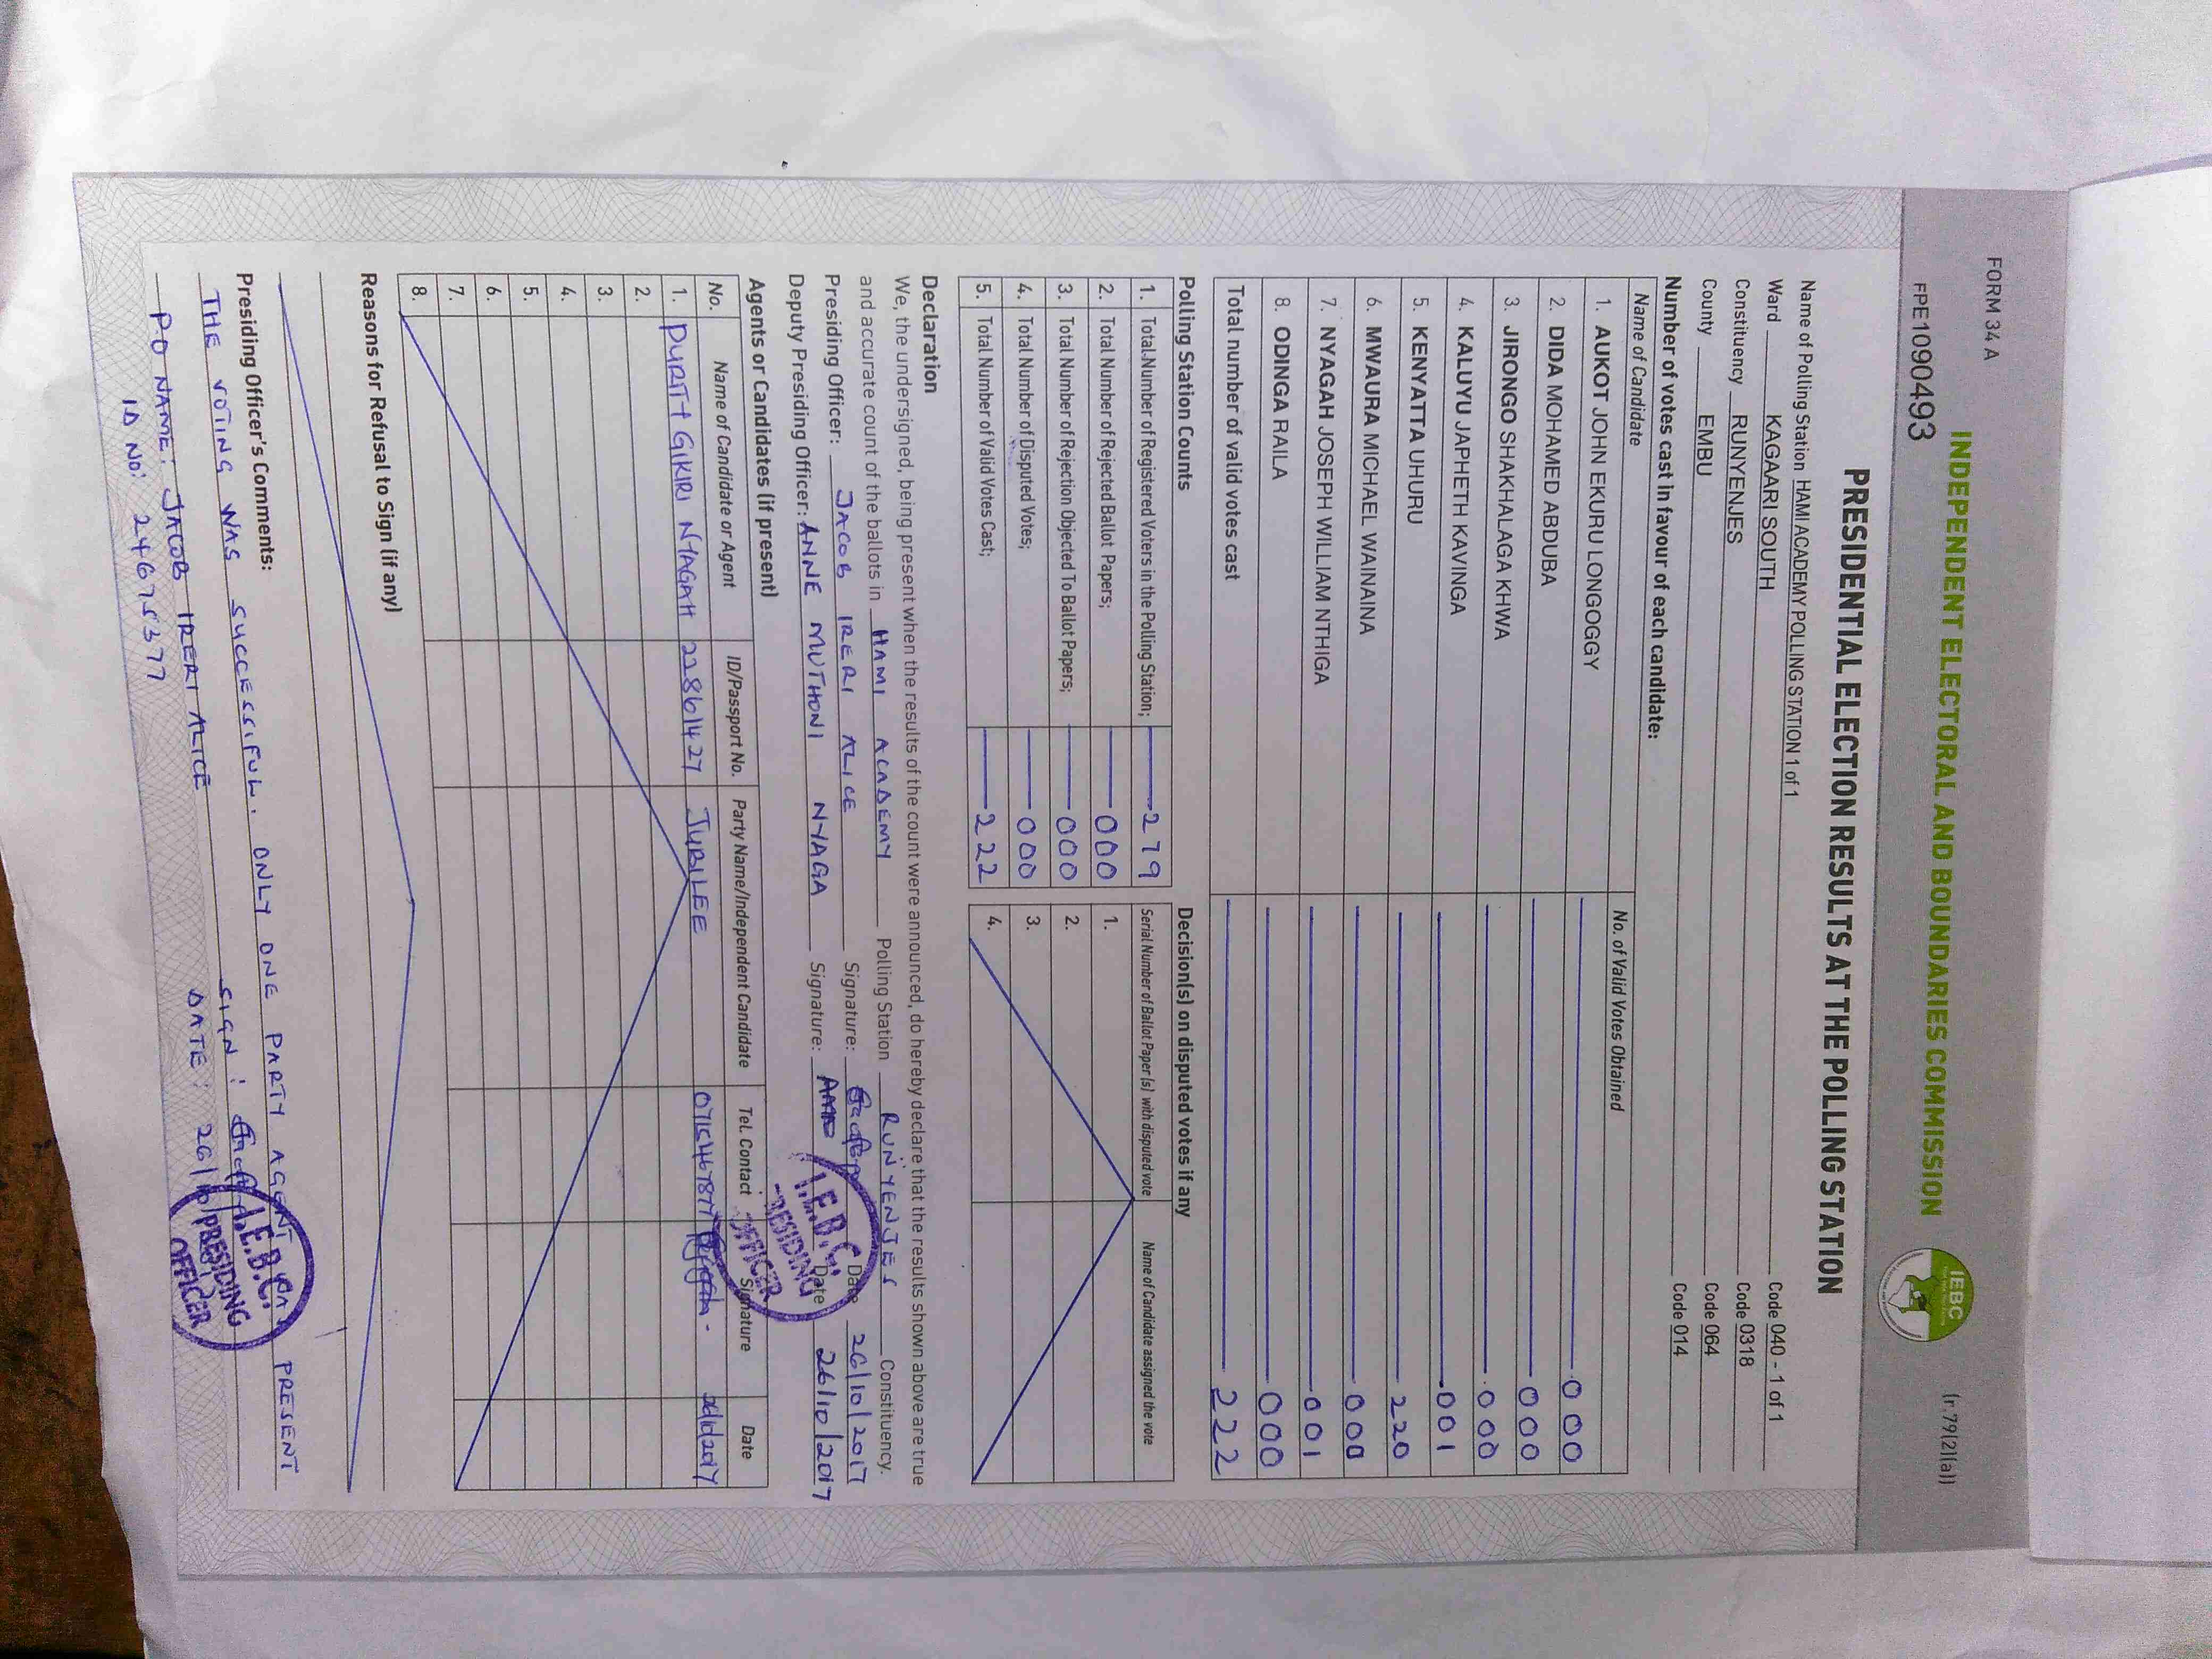 FORM 34 A
(r.79(2)(a))
INDEPENDENT ELECTORAL AND BOUNDARIES COMMISSION
IEBC
FPE1090493
PRESIDENTIAL ELECTION RESULTS AT THE POLLING STATION
Name of Polling Station HAMI ACADEMY POLLING STATION 1 of 1 Code 040 - 1 of 1
Ward KAGAARI SOUTH Code 0318
Constituency RUNYENJES Code 064
County EMBU Code 014
Number of votes cast in favour of each candidate:
Name of Candidate No. of Valid Votes Obtained
1. AUKOT JOHN EKURU LONGOGGY 000
2. DIDA MOHAMED ABDUBA 000
3. JIRONGO SHAKHALAGA KHWA 000
4. KALUYU JAPHETH KAVINGA 001
5. KENYATTA UHURU 220
6. MWAURA MICHAEL WAINAINA 000
7. NYAGAH JOSEPH WILLIAM NTHIGA 001
8. ODINGA RAILA 000
Total number of valid votes cast 222
Polling Station Counts
1. Total Number of Registered Voters in the Polling Station; 279
2. Total Number of Rejected Ballot Papers; 000
3. Total Number of Rejection Objected To Ballot Papers; 000
4. Total Number of Disputed Votes; 000
5. Total Number of Valid Votes Cast; 222
Decision(s) on disputed votes if any
Serial Number of Ballot Paper (s) with disputed vote Name of Candidate assigned the vote
1.
2.
3.
4.
Declaration
We, the undersigned, being present when the results of the count were announced, do hereby declare that the results shown above are true
and accurate count of the ballots in HAMI ACADEMY Polling Station RUNYENJES Constituency.
Presiding Officer: JACOB IRERI ALICE Signature: Date 26/10/2017
Deputy Presiding Officer: ANNE MUTHONI NYAGA Signature: Date 26/10/2017
I.E.B.C. PRESIDING OFFICER
Agents or Candidates (if present)
No. Name of Candidate or Agent ID/Passport No. Party Name/Independent Candidate Tel. Contact Signature Date
1. GIKIRI NYAGAH 22861427 JUBILEE
2.
3.
4.
5.
6.
7.
8.
Reasons for Refusal to Sign (if any)
Presiding Officer's Comments:
THE VOTING WAS SUCCESSIFUL. ONLY ONE PARTY AGENT PRESENT
PO NAME: JACOB IRERI ALICE SIGN:
ID NO: 24675377 DATE:
I.E.B.C. PRESIDING OFFICER